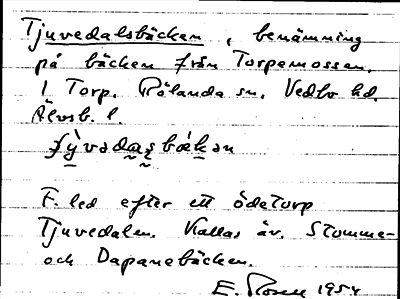 Tjuvedalsbäcken, benämning
på bäcken från Torpemossen.
1 Torp. Rölanda sn. Vedbo hd.
Älvsb. l.
F. led efter ett ödetorp
Tjuvedalen. Kallas äv. Stomme-
och Dapanebäcken.
E. Rosell 1954